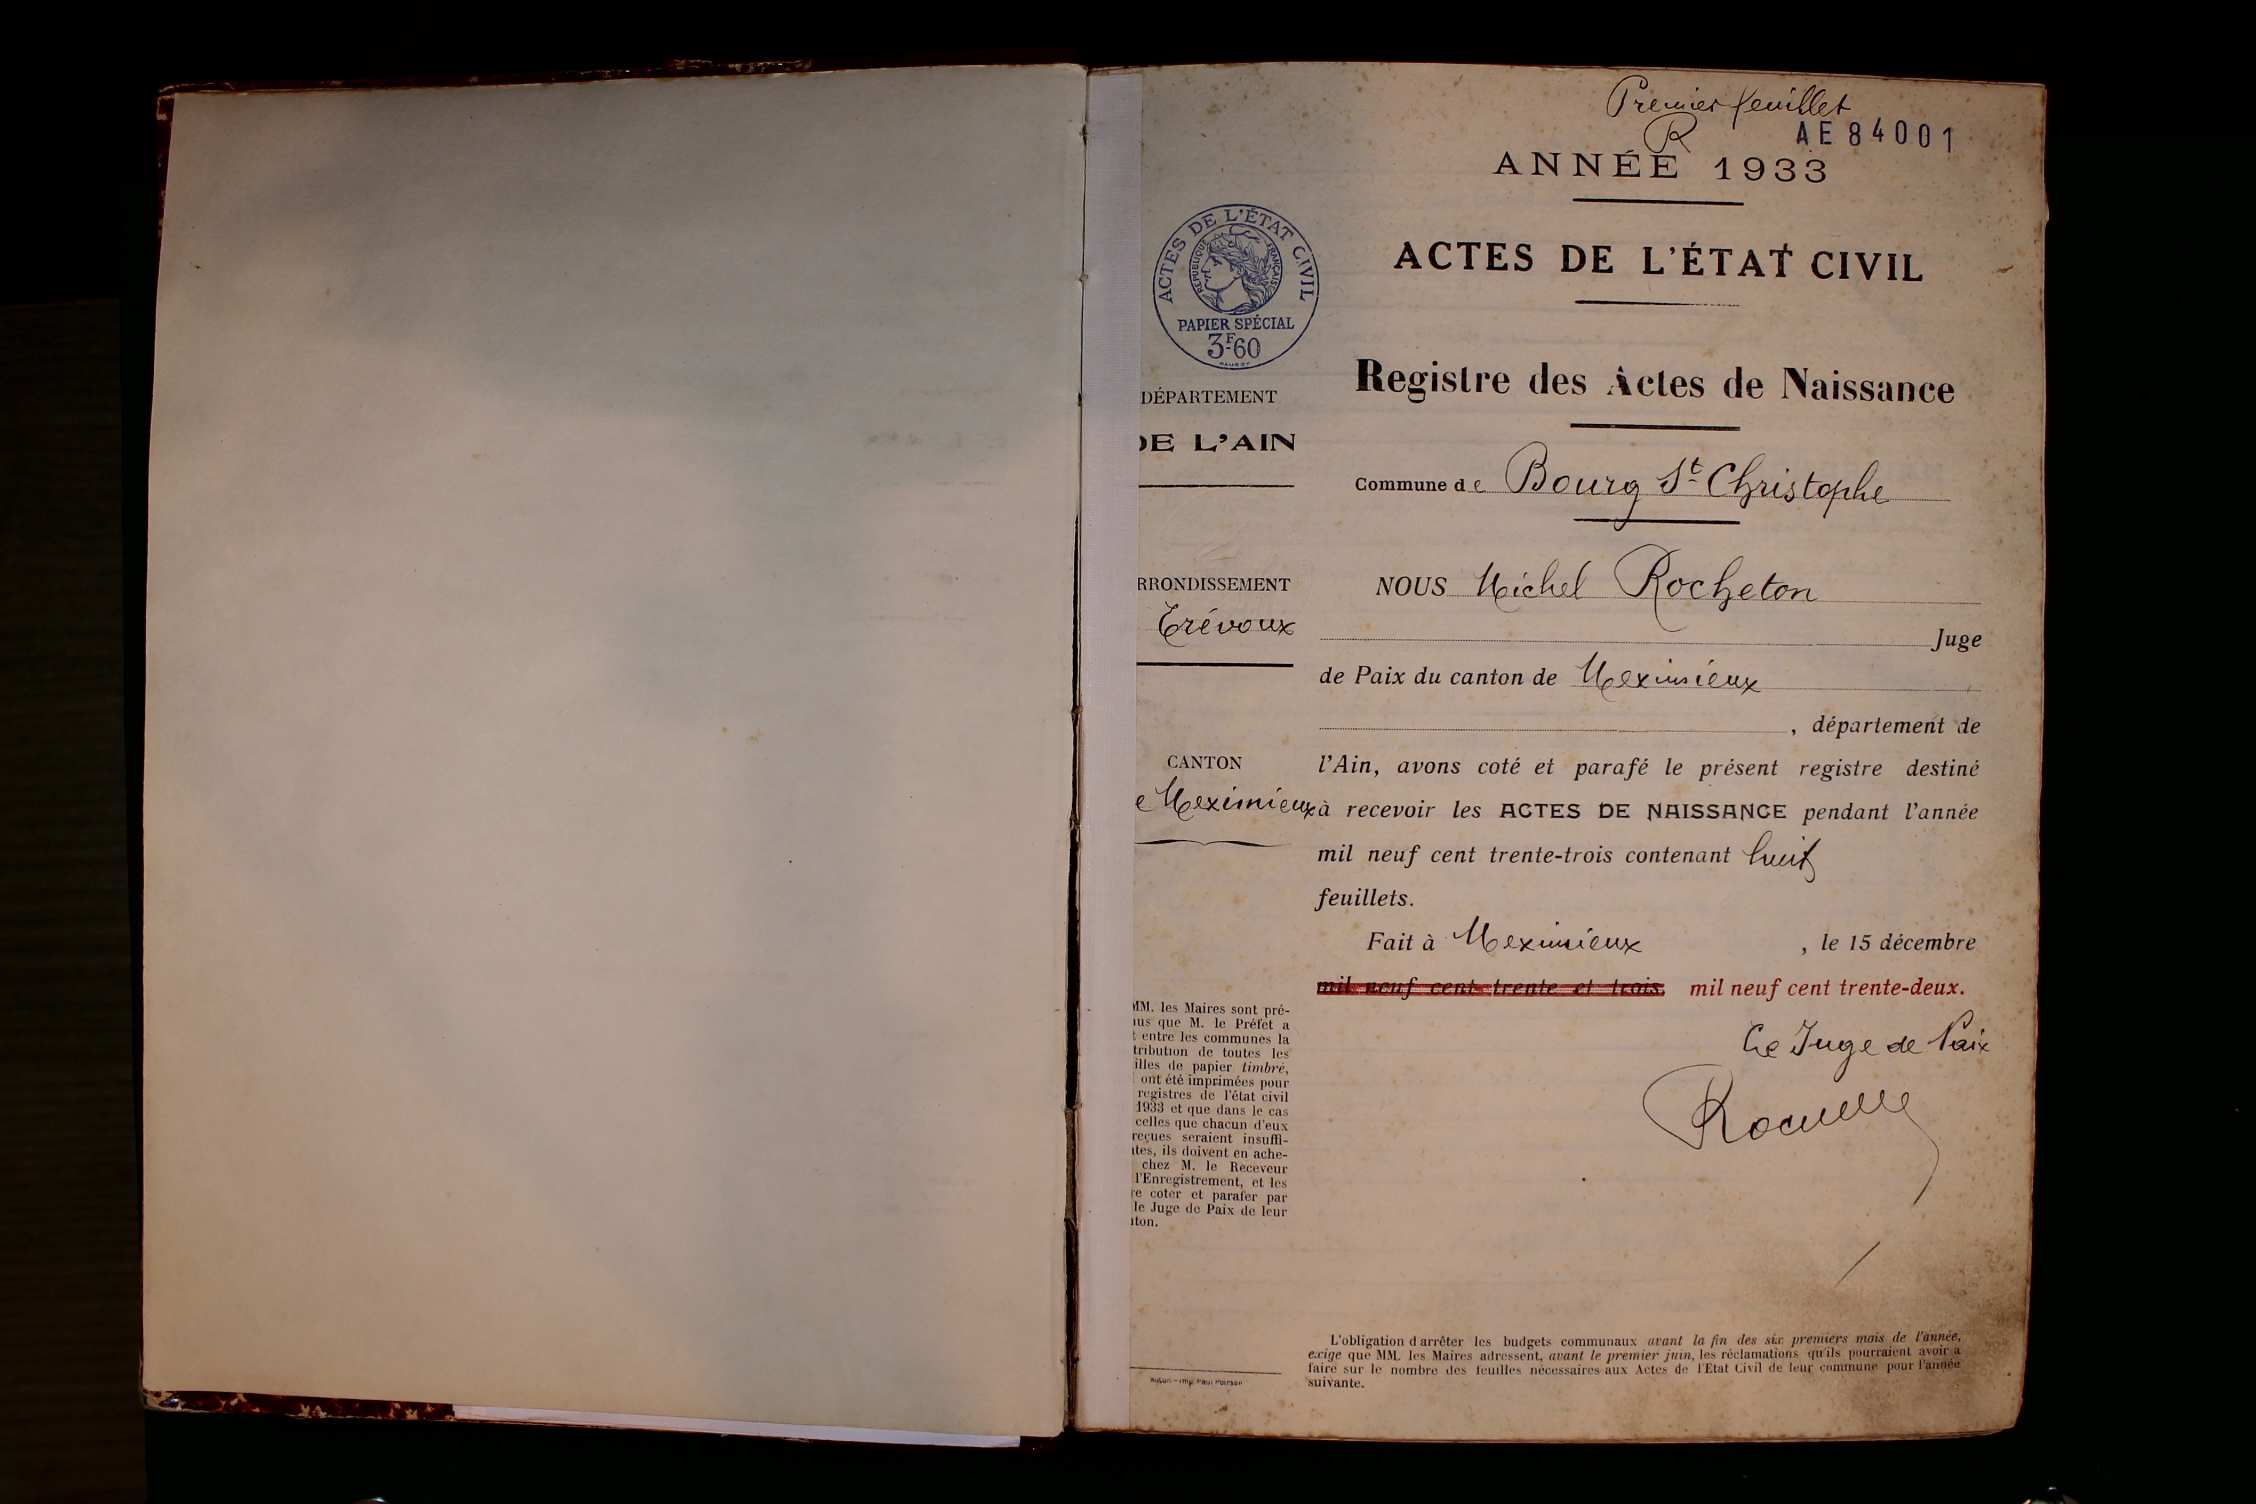 Premier feuillet
R
AE 84001
ANNÉE 1933
ACTES DE L'ÉTAT CIVIL
ACTES DE L'ÉTAT CIVIL
RÉPUBLIQUE FRANÇAISE
PAPIER SPÉCIAL
3F60
Registre des Actes de Naissance
DÉPARTEMENT
DE L'AIN
Commune de Bourg St Christophe
RRONDISSEMENT
Trévoux
CANTON
e Meximieux
MM. les Maires sont pré-
nus que M. le Préfet a
t entre les communes la
tribution de toutes les
illes de papier timbré,
ont été imprimées pour
registres de l'état civil
1933 et que dans le cas
celles que chacun d'eux
reçues seraient insuffi-
ntes, ils doivent en ache-
chez M. le Receveur
l'Enregistrement, et les
re coter et parafer par
le Juge de Paix de leur
nton.
NOUS Michel Rocheton
Juge
de Paix du canton de Meximieux
, département de
l'Ain, avons coté et parafé le présent registre destiné
à recevoir les ACTES DE NAISSANCE pendant l'année
mil neuf cent trente-trois contenant huit
feuillets.
Fait à Meximieux , le 15 décembre
mil neuf cent trente et trois. mil neuf cent trente-deux.
Le Juge de Paix
L'obligation d'arrêter les budgets communaux avant la fin des six premiers mois de l'année,
exige que MM. les Maires adressent, avant le premier juin, les réclamations qu'ils pourraient avoir à
faire sur le nombre des feuilles nécessaires aux Actes de l'Etat Civil de leur commune pour l'année
suivante.